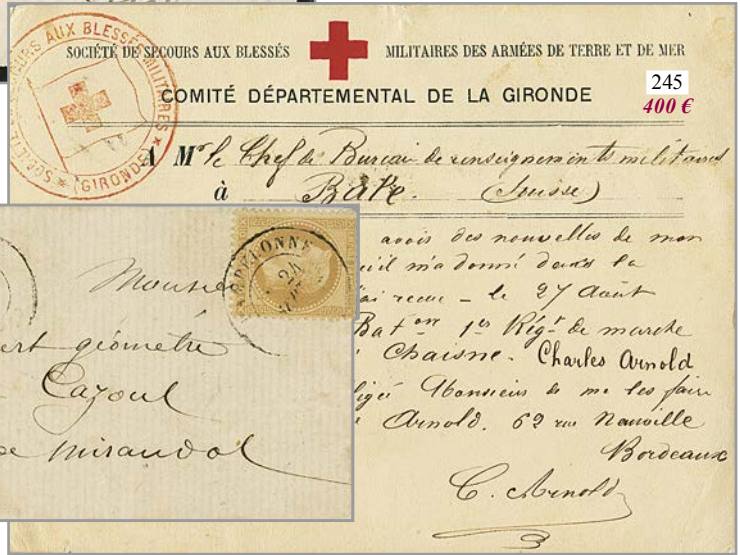 SOCIÉTÉ DE SECOURS AUX BLESSÉS MILITAIRES DES ARMÉES DE TERRE ET DE MER
COMITÉ DÉPARTEMENTAL DE LA GIRONDE
245
400 €
SECOURS AUX BLESSÉS MILITAIRES
(GIRONDE)
A Mr le Chef de Bureau de renseignements militaires
à Bâle. (Suisse)
avois des nouvelles de mon
m'a donné dans la
reçue - le 27 Août
Baton 1er Régt de marche
Chaisne. Charles Arnold
Monsieur de me les faire
Arnold. 62 rue Nauville
Bordeaux
C. Arnold
Monsieur
géomètre
Cazoul
de mirandol